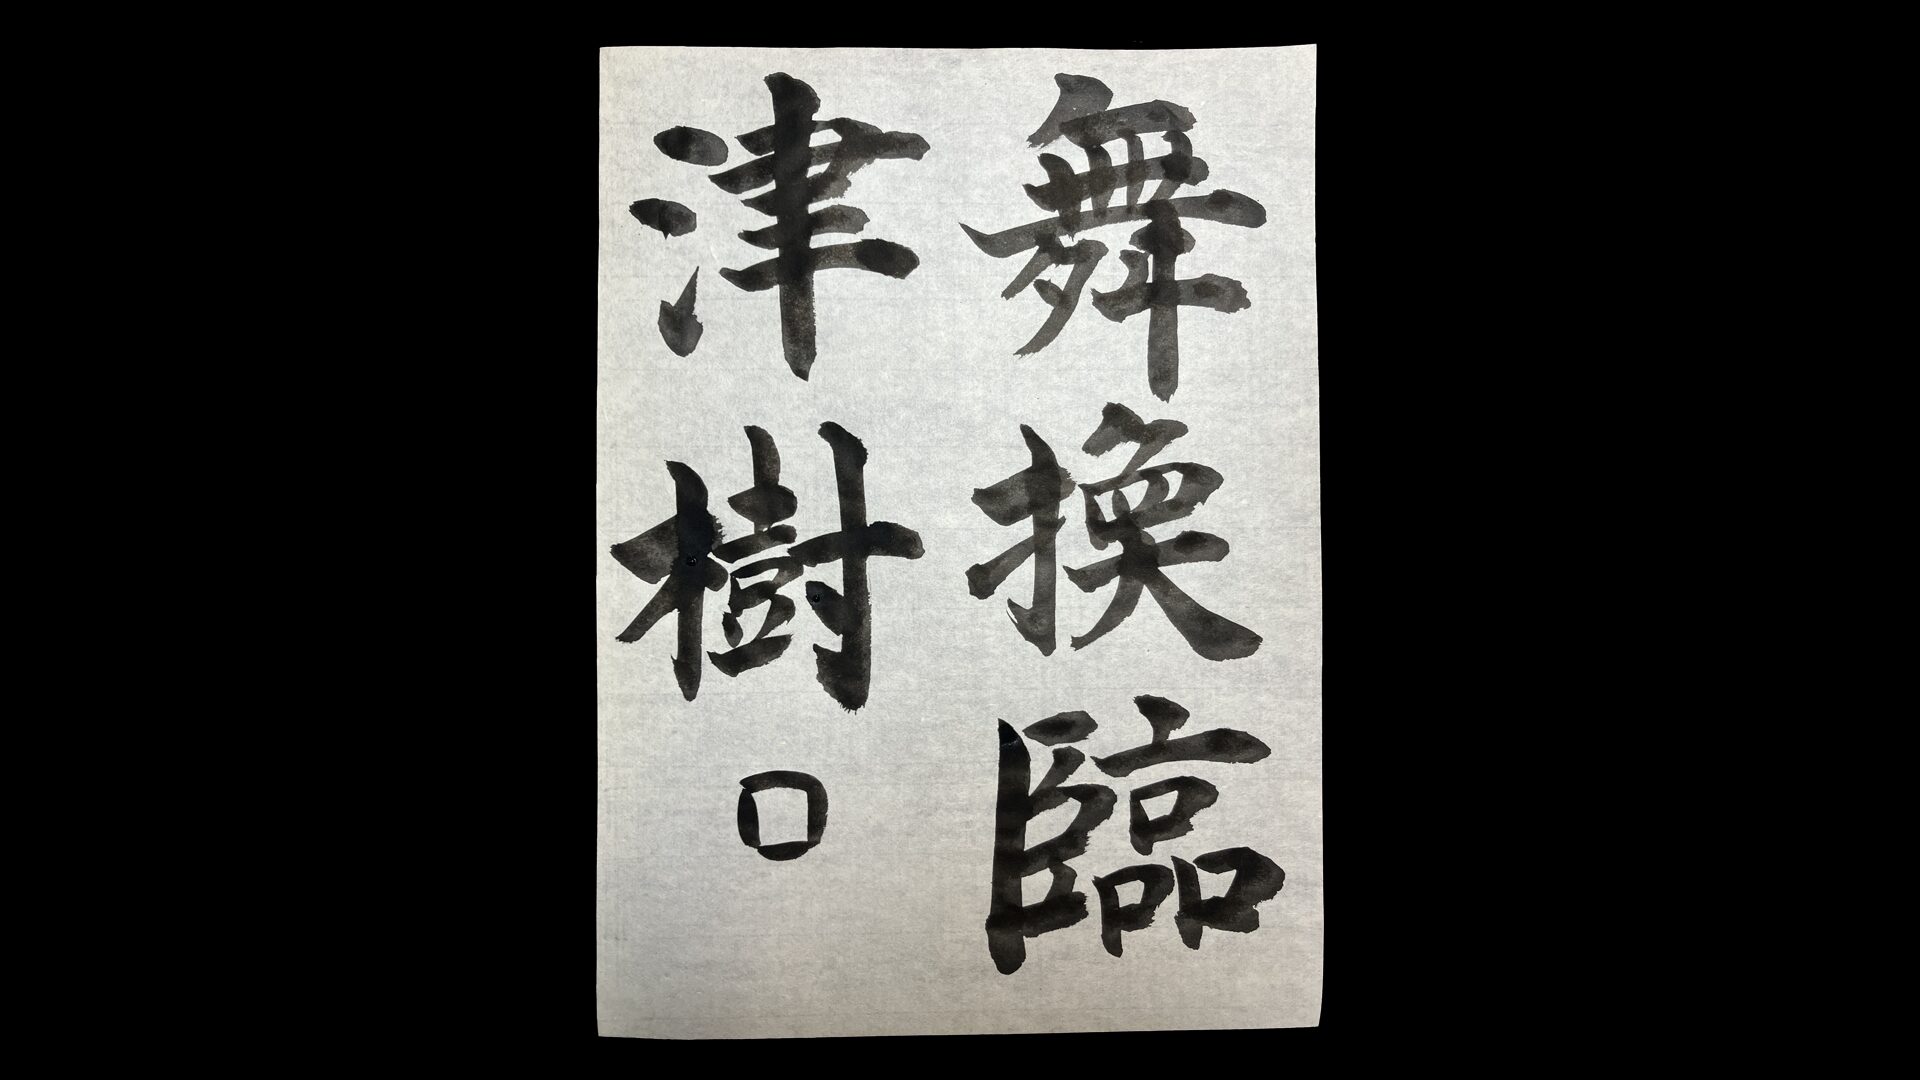 舞換臨
津樹口